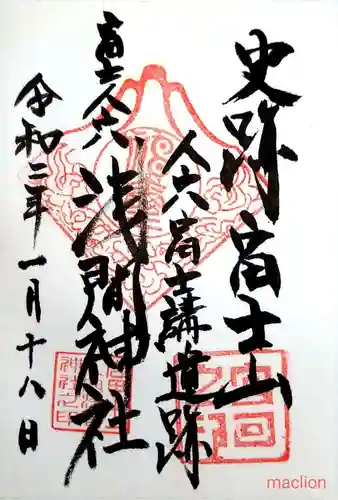 史跡富士山
人穴富士講遺跡
富士人穴
浅間神社
令和三年一月十八日
maclion